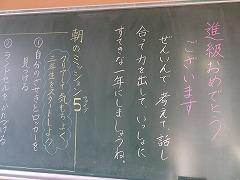 進級おめでとう
ございます
ぜんいんで考えて、話し
合って力を出していっしょに
すてきな一年にしましょうね。
朝のミッション5
ファイブ
クリアして気もちよく
二年生をスタートしよう
①自分のせきとロッカーを
見つける
②ランドセルをかたづける